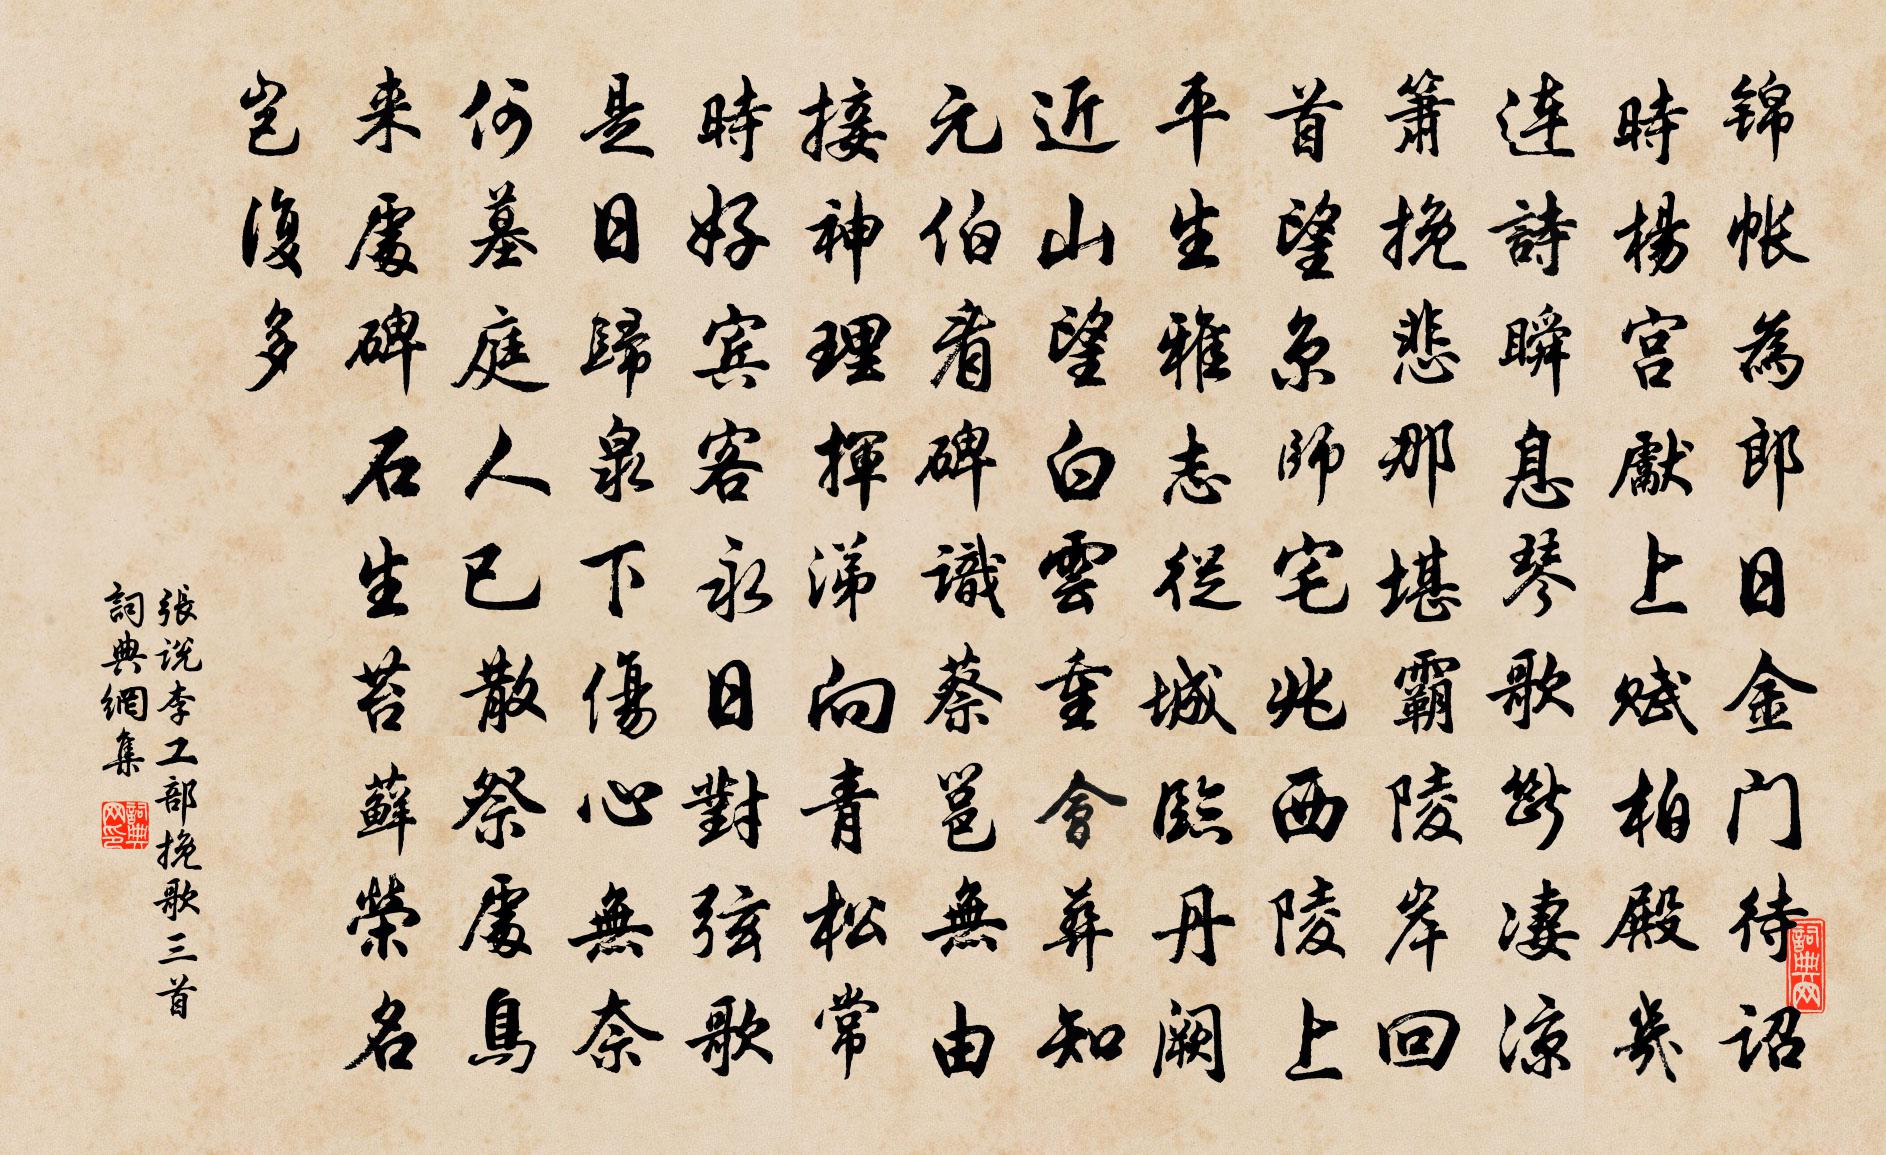 锦帐為郎日金门待詔
時楊宫獻上赋柏殿幾
连詩瞬息琴歌断凄涼
簫挽悲那堪霸陵岸回
首望京師宅兆西陵上
平生雅志従城臨丹闕
近山望白雲重會葬知
元伯看碑識蔡邕無由
接神理揮涕向青松常
時好宾客永日對弦歌
是日歸泉下傷心無奈
何墓庭人已散祭處鳥
来處碑石生苔蘚榮名
岂復多
張说李工部挽歌三首
詞典網集
詞典网
詞典网印